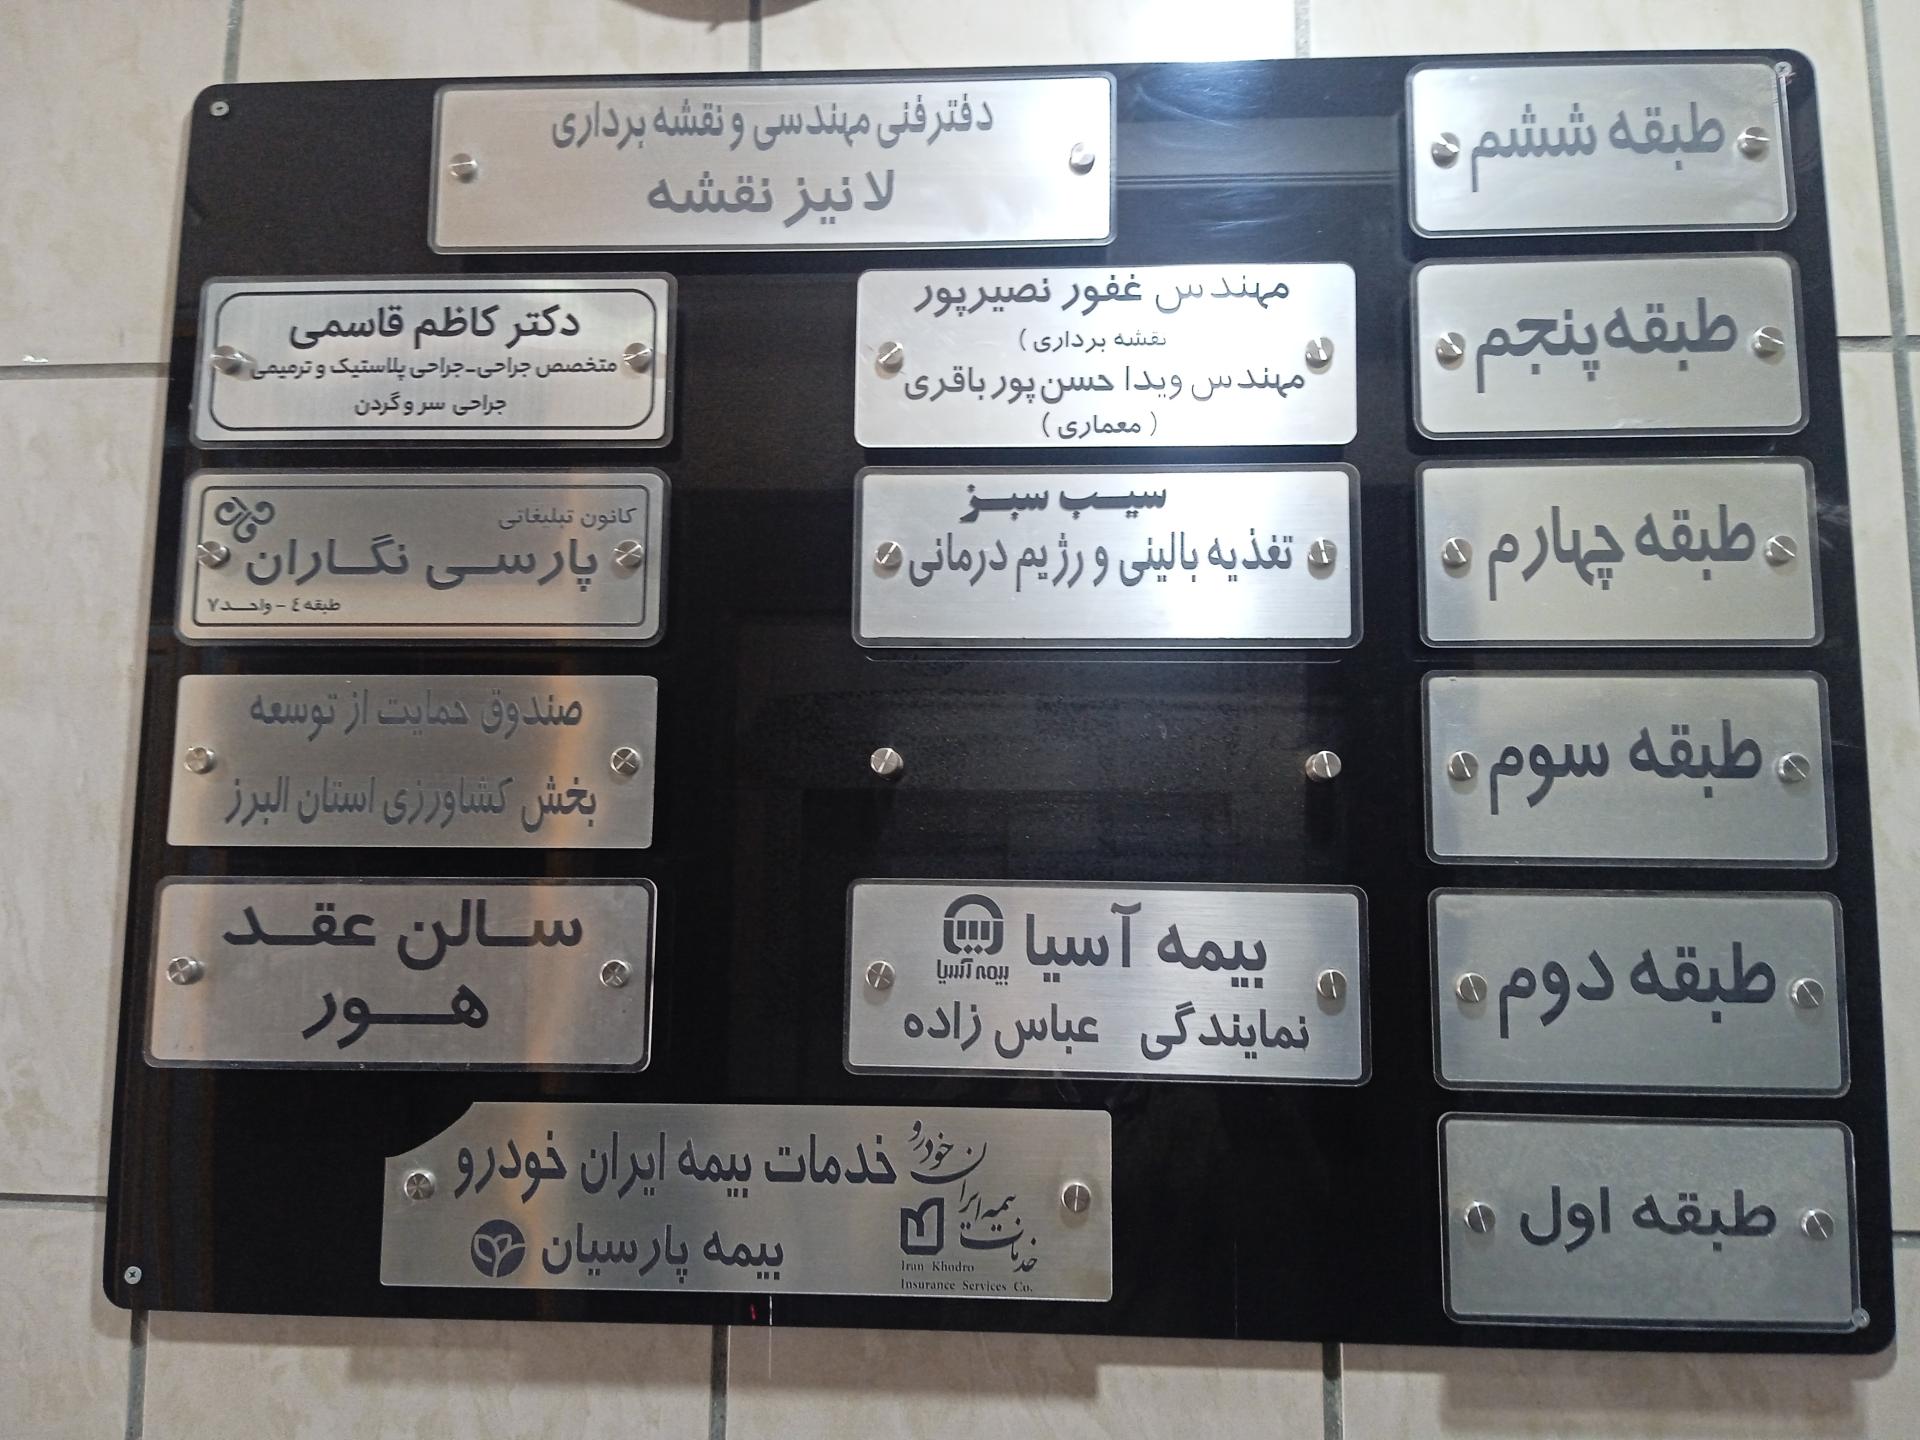 طبقه ششم
دفتر فنی مهندسی و نقشه برداری
لانیز نقشه
طبقه پنجم
مهندس غفور نصیرپور
(نقشه برداری)
مهندس ویدا حسن پور باقری
(معماری)
دکتر کاظم قاسمی
متخصص جراحی-جراحی پلاستیک و ترمیمی
جراحی سر و گردن
طبقه چهارم
سیب سبز
تغذیه بالینی و رژیم درمانی
کانون تبلیغاتی
پارسی نگاران
طبقه ٤ - واحد ۷
طبقه سوم
صندوق حمایت از توسعه
بخش کشاورزی استان البرز
طبقه دوم
بیمه آسیا
بیمه آسیا
نمایندگی عباس زاده
سالن عقد
هور
طبقه اول
خدمات بیمه ایران خودرو
بیمه پارسیان
خدمات بیمه ایران خودرو
Iran Khodro
Insurance Services Co.